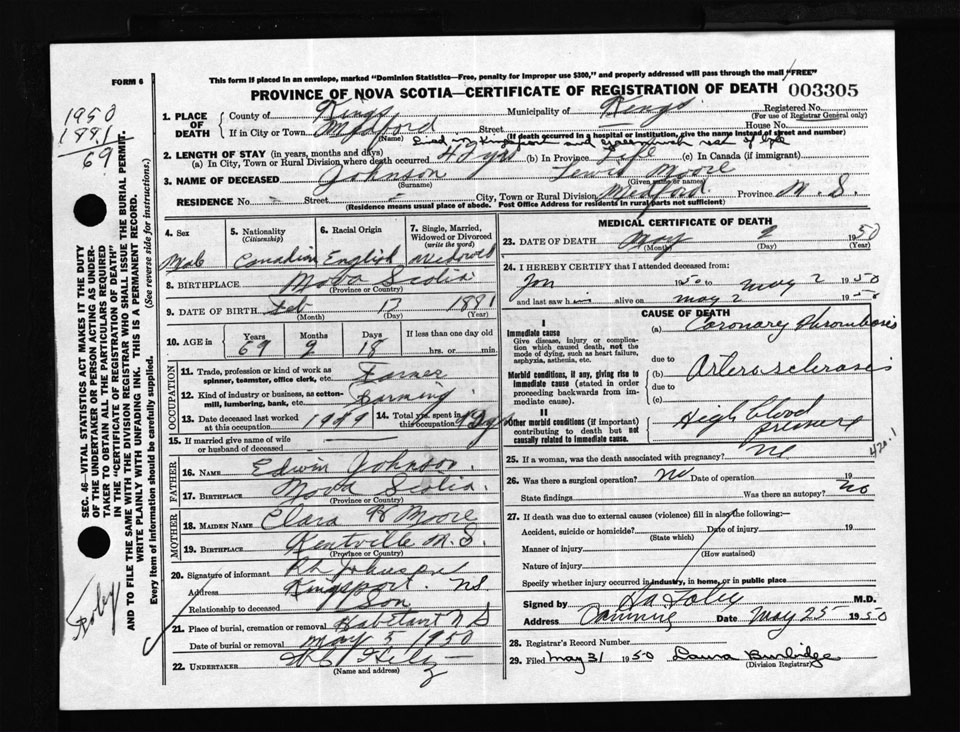 This form if placed in an envelope, marked "Dominion Statistics—Free, penalty for improper use $300," and properly addressed will pass through the mail "FREE"
FORM 6
PROVINCE OF NOVA SCOTIA—CERTIFICATE OF REGISTRATION OF DEATH 003305
1950
1881
69
1. PLACE OF DEATH County of Kings Municipality of Kings Registered No.
(For use of Registrar General only)
If in City or Town Medford Street House No.
(Name) (If death occurred in a hospital or institution, give the name instead of street and number)
Lived in Kingsport and Greenwich rest of life
2. LENGTH OF STAY (in years, months and days)
(a) In City, Town or Rural Division where death occurred 4 yrs (b) In Province Life (c) In Canada (if immigrant)
3. NAME OF DECEASED Johnson Lewis Moore
(Surname) (Given name or names)
RESIDENCE No. - Street - City, Town or Rural Division Medford Province N. S.
(Residence means usual place of abode. Post Office Address for residents in rural parts not sufficient)
4. Sex
Male
5. Nationality
(Citizenship)
Canadian
6. Racial Origin
English
7. Single, Married, Widowed or Divorced
(write the word)
Widowed
8. BIRTHPLACE Nova Scotia
(Province or Country)
9. DATE OF BIRTH Feb 13 1881
(Month) (Day) (Year)
10. AGE in Years Months Days If less than one day old
69 2 18 hrs. or min.
OCCUPATION
11. Trade, profession or kind of work as spinner, teamster, office clerk, etc. Farmer
12. Kind of industry or business, as cotton-mill, lumbering, bank, etc. Farming
13. Date deceased last worked at this occupation 1949
14. Total yrs spent in this occupation
15. If married give name of wife or husband of deceased —
FATHER
16. NAME Edwin Johnson
17. BIRTHPLACE Nova Scotia
(Province or Country)
MOTHER
18. MAIDEN NAME Clara H Moore
19. BIRTHPLACE Kentville N. S.
(Province or Country)
20. Signature of informant Johnson
Address Kingsport NS
Relationship to deceased Son
21. Place of burial, cremation or removal Habitant N S
Date of burial or removal May 5 1950
22. UNDERTAKER
(Name and address)
MEDICAL CERTIFICATE OF DEATH
23. DATE OF DEATH May 2 1950
(Month) (Day) (Year)
24. I HEREBY CERTIFY that I attended deceased from:
Jan 1950 to May 2 1950
and last saw him alive on May 2 1950
CAUSE OF DEATH
I
Immediate cause
Give disease, injury or complication which caused death, not the mode of dying, such as heart failure, asphyxia, asthenia, etc.
(a) Coronary Thrombosis
due to
Morbid conditions, if any, giving rise to immediate cause (stated in order proceeding backwards from immediate cause).
(b) Arteriosclerosis
due to
(c)
II
Other morbid conditions (if important) contributing to death but not causally related to immediate cause.
High blood pressure
420.1
25. If a woman, was the death associated with pregnancy?
26. Was there a surgical operation? No Date of operation 19
State findings Was there an autopsy? No
27. If death was due to external causes (violence) fill in also the following:—
Accident, suicide or homicide? Date of injury 19
(State which)
Manner of injury
(How sustained)
Nature of injury
Specify whether injury occurred in industry, in home, or in public place
Signed by Foley M.D.
Address Canning Date May 25 1950
28. Registrar's Record Number
29. Filed May 31 1950 Laura Burbidge
(Division Registrar)
SEC. 46—VITAL STATISTICS ACT MAKES IT THE DUTY
OF THE UNDERTAKER OR PERSON ACTING AS UNDER-
TAKER TO OBTAIN ALL THE PARTICULARS REQUIRED
IN THE "CERTIFICATE OF REGISTRATION OF DEATH"
AND TO FILE THE SAME WITH THE DIVISION REGISTRAR WHO SHALL ISSUE THE BURIAL PERMIT.
WRITE PLAINLY WITH UNFADING INK. THIS IS A PERMANENT RECORD.
Every item of information should be carefully supplied. (See reverse side for instructions.)
Foley